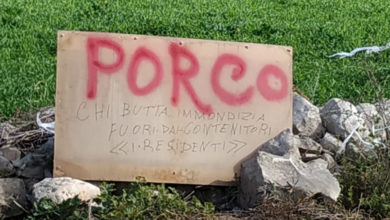 PORCO
CHI BUTTA IMMONDIZIA
FUORI DAI CONTENITORI
<<I RESIDENTI>>